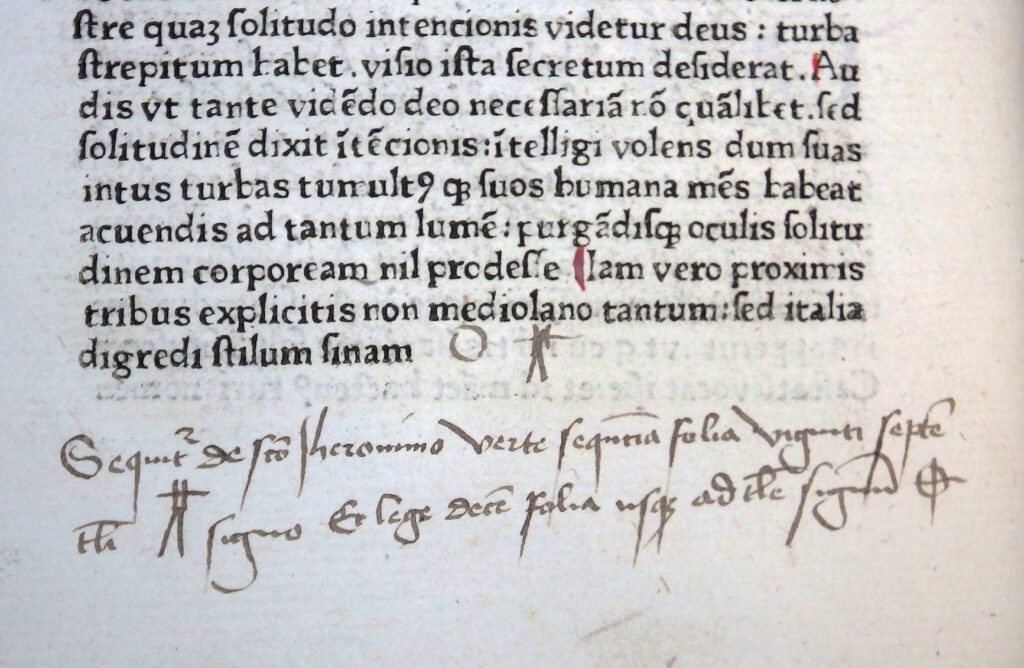 ſtre quaꝫ ſolitudo intencionis videtur deus : turba
ſtrepitum habet . viſio iſta ſecretum deſiderat . Au
dis vt tante vidēdo deo neceſſariā nō quālibet . ſed
ſolitudinē dixit ītēcionis : ītelligi volens dum ſuas
intus turbas tumultꝯ ꝙ ſuos humana mēs habeat
acuendis ad tantum lumē : purgādiſꝙ oculis ſolitu
dinem corpoream nil prodeſſe Iam vero proximis
tribus explicitis non mediolano tantum : ſed italia
digredi ſtilum ſinam
Sequitr de ſcō Iheronimo verte ſequētia folia viginti ſeptē
tli ſigno Et lege decē folia uſqꝫ ad tle ſignū